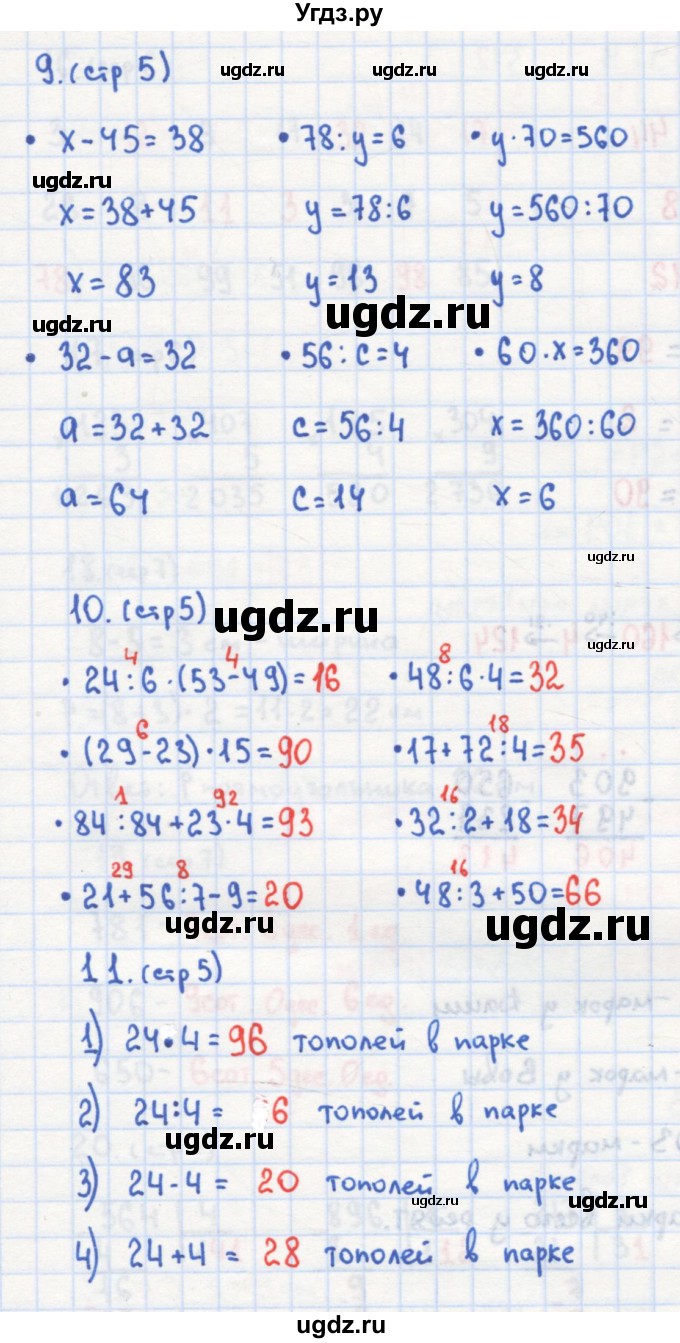 Угдз.ру
9. (стр 5)
ugdz.ru ugdz.ru ugdz.ru
• x - 45 = 38 • 78 : y = 6 • y · 70 = 560
ugdz.ru
x = 38 + 45 y = 78 : 6 y = 560 : 70
x = 83 y = 13 y = 8
ugdz.ru ugdz.ru
• 32 - a = 32 • 56 : c = 4 • 60 · x = 360
a = 32 + 32 c = 56 : 4 x = 360 : 60
a = 64 c = 14 x = 6
ugdz.ru
10. (стр 5)
ugdz.ru ugdz.ru
4 4 8
• 24 : 6 · (53 - 49) = 16 • 48 : 6 · 4 = 32
6 18
• (29 - 23) · 15 = 90 • 17 + 72 : 4 = 35
1 92 16
• 84 : 84 + 23 · 4 = 93 • 32 : 2 + 18 = 34
29 8 16
• 21 + 56 : 7 - 9 = 20 • 48 : 3 + 50 = 66
ugdz.ru ugdz.ru
11. (стр 5)
1) 24 · 4 = 96 тополей в парке
2) 24 : 4 = 6 тополей в парке
ugdz.ru
3) 24 - 4 = 20 тополей в парке
ugdz.ru ugdz.ru
4) 24 + 4 = 28 тополей в парке
ugdz.ru